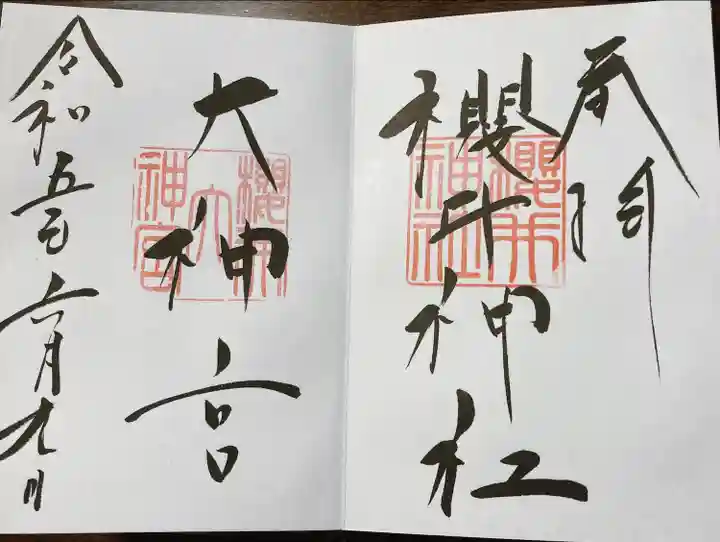 奉拝
櫻井神社
櫻井神社
大神宮
櫻井大神宮
令和五年六月九日